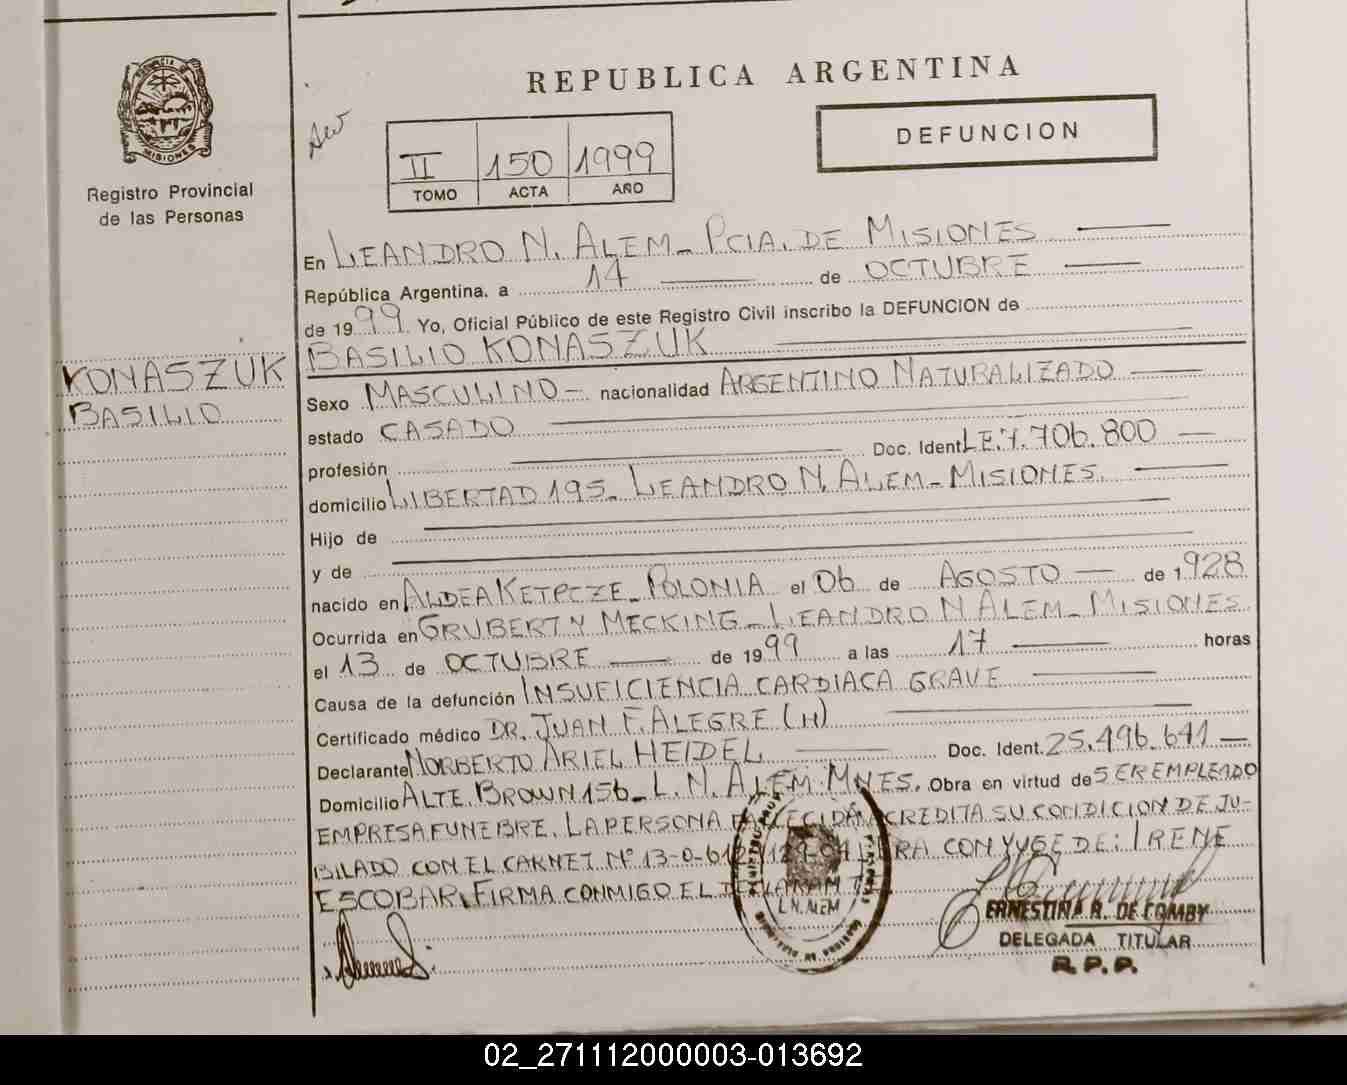 PROVINCIA DE
MISIONES
Registro Provincial
de las Personas
KONASZUK
BASILIO
REPUBLICA ARGENTINA
DEFUNCION
II 150 1999
TOMO ACTA AÑO
En LEANDRO N. ALEM - PCIA. DE MISIONES
República Argentina. a 14 de OCTUBRE
de 1999 Yo, Oficial Público de este Registro Civil inscribo la DEFUNCION de
BASILIO KONASZUK
Sexo MASCULINO - nacionalidad ARGENTINO NATURALIZADO
estado CASADO
profesión Doc. Ident. L.E. 7.706.800
domicilio LIBERTAD 195 - LEANDRO N. ALEM - MISIONES.
Hijo de
y de
nacido en ALDEA KETPCZE - POLONIA el 06 de AGOSTO de 1.928
Ocurrida en GRUBERT Y MECKING - LEANDRO N ALEM - MISIONES
el 13 de OCTUBRE de 1999 a las 17 horas
Causa de la defunción INSUFICIENCIA CARDIACA GRAVE
Certificado médico DR. JUAN F. ALEGRE (H)
Declarante NORBERTO ARIEL HEIDEL Doc. Ident. 25.496.641
Domicilio ALTE. BROWN 156 - L. N. ALEM - MNES. Obra en virtud de SER EMPLEADO
EMPRESA FUNEBRE. LA PERSONA FALLECIDA ACREDITA SU CONDICION DE JU-
BILADO CON EL CARNET Nº 13-0-61 ERA CONYUGE DE: IRENE
ESCOBAR. FIRMA CONMIGO EL DECLARANTE
L.N. ALEM
ERNESTINA R. DE COMBY
DELEGADA TITULAR
R.P.P.
02_271112000003-013692